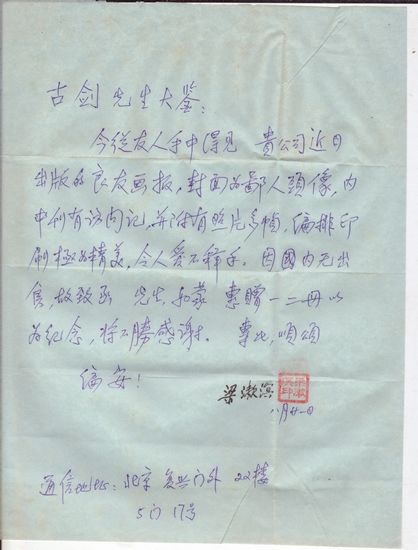 古剑先生大鉴：
今從友人手中得見 貴公司近日
出版的良友画报，封面为鄙人頭像，内
中刊有访问记，并附有照片多幀，编排印
刷極为精美，令人爱不释手。因國内无出
售，故致函 先生，如蒙 惠贈一二册以
为纪念，将不勝感谢。 專此，順頌
编安！
梁漱溟
八月廿一日
通信地址：北京 复兴门外 22楼
5门 17号